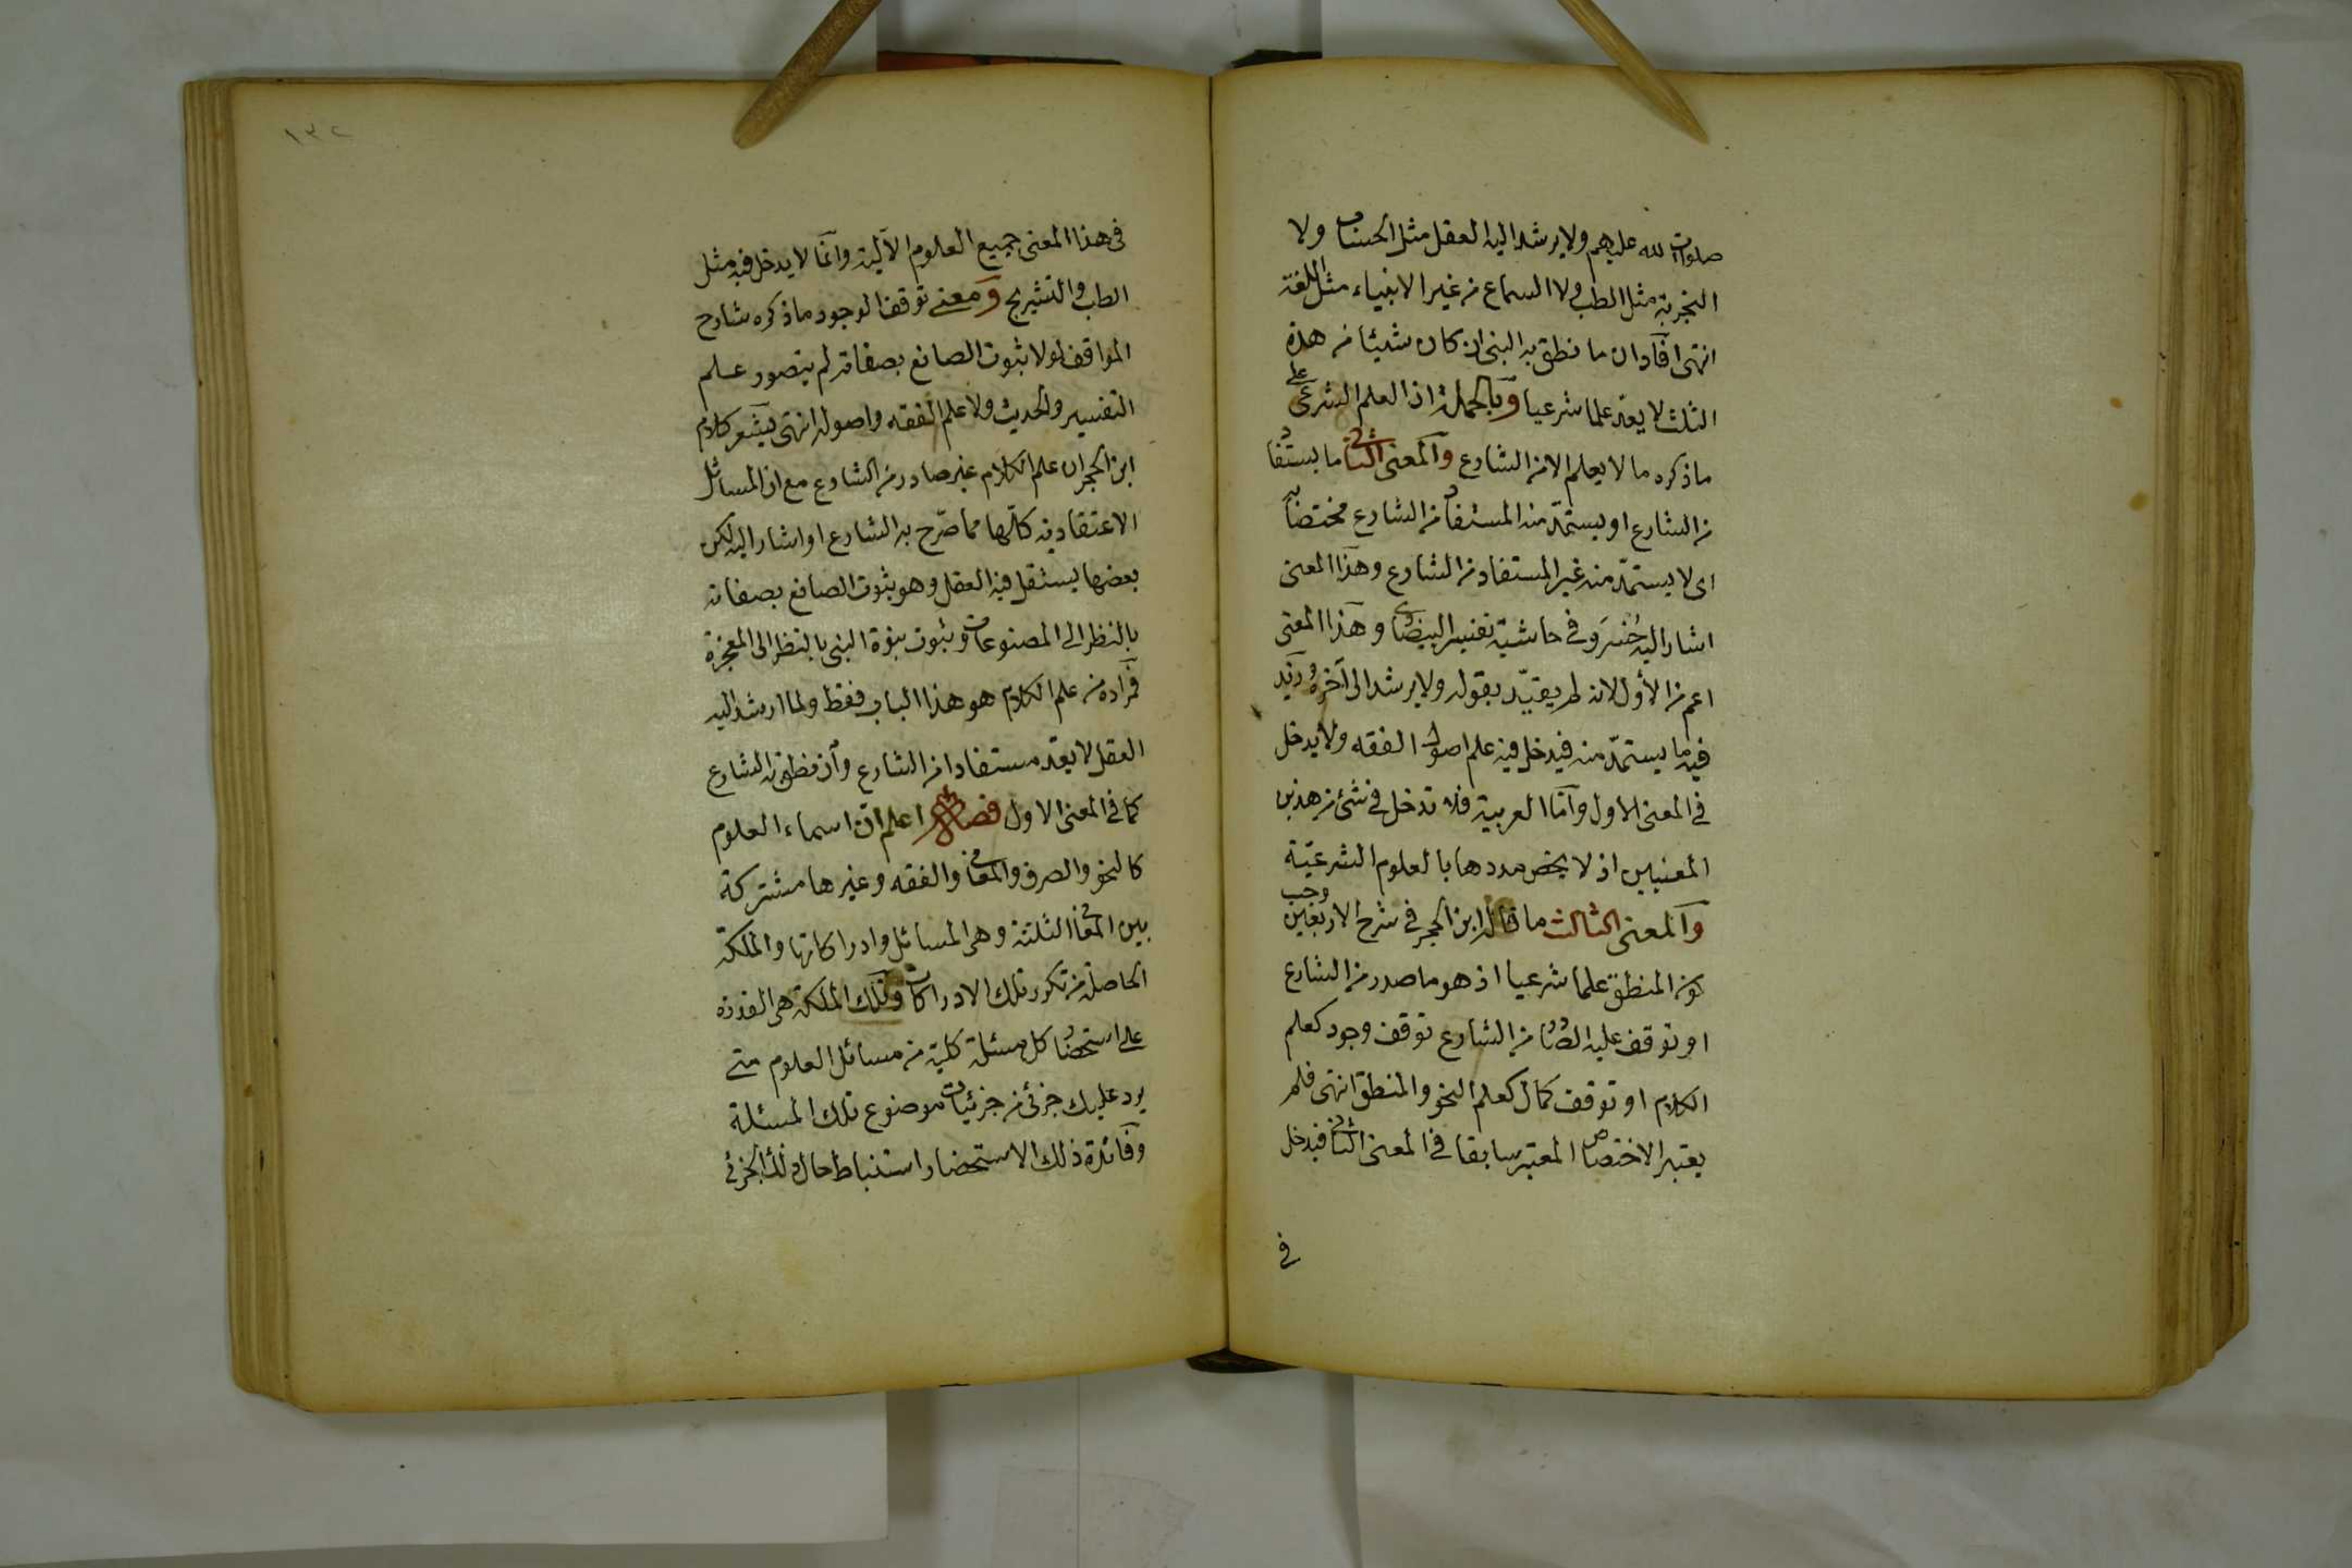 صلوات الله عليهم ولا يرشد اليه العقل مثل الحساب ولا
التجربة مثل الطب ولا السماع من غير الانبياء مثل اللغة
انتهى افاد ان ما نطق به النبى ان كان شيئا من هذه
الثلث لا يعد علما شرعيا وبالجملة اذ العلم الشرعى على
ما ذكره ما لا يعلم الا من الشارع والمعنى الثانى ما يستفاد
من الشارع او يستمد منه المستفاد من الشارع مختصا به
اى لا يستمد منه غير المستفاد من الشارع وهذا المعنى
اشار اليه خُسرَو فى حاشية تفسير البيضاوى وهذا المعنى
اعم من الأول لانه لم يقيّد بقوله ولا يرشد الى آخره وزيد
فيه ما يستمدّ منه فيدخل فيه علم اصول الفقه ولا يدخل
فى المعنى الاول وامّا العربية فلا تدخل فى شئ من هذين
المعنيين اذ لا يخص مددها بالعلوم الشرعيّة
والمعنى الثالث ما قاله ابن الحجر فى شرح الاربعين وجب
كون المنطق علما شرعيا اذ هو ما صدر من الشارع
او توقف عليه الصادر من الشارع توقف وجود كعلم
الكلام او توقف كمال كعلم النحو والمنطق انتهى فلم
يعتبر الاختصاص المعتبر سابقا فى المعنى الثانى فيدخل
فى
١٣٢
فى هذا المعنى جميع العلوم الآلية وانما لا يدخل فيه مثل
الطب والتشريح ومعنى توقف الوجود ما ذكره شارح
المواقف لولا ثبوت الصانع بصفاته لم يتصور علم
التفسير والحديث ولا علم الفقه واصوله انتهى يشعر كلام
ابن الحجر ان علم الكلام غير صادر من الشارع مع ان المسائل
الاعتقادية كلّها مما صرّح به الشارع او اشار اليه لكن
بعضها يستقل فيه العقل وهو ثبوت الصانع بصفاته
بالنظر الى المصنوعات وثبوت نبوة النبى بالنظر الى المعجزة
فمراده من علم الكلام هو هذا الباب فقط ولما ارشد اليه
العقل لا يعد مستفادا من الشارع وان نطق به الشارع
كما فى المعنى الاول فصل اعلم ان اسماء العلوم
كالنحو والصرف والمعانى والفقه وغيرها مشتركة
بين المعانى الثلثة وهى المسائل وادراكاتها والملكة
الحاصلة من تكرر تلك الادراكات وتلك الملكة هى القدرة
على استحضار كل مسئلة كلية من مسائل العلوم متى
يرد عليك جزئى من جزئيات موضوع تلك المسئلة
وفائدة ذلك الاستحضار استنباط حال ذلك الجزئى